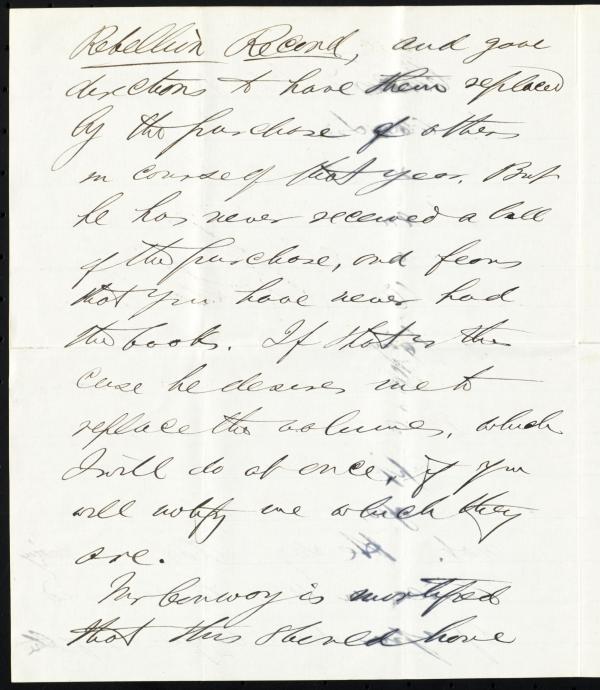 Rebellion Record, and gave
directions to have them replaced
by the purchase of others
in course of that year. But
he has never received a bill
of the purchase, and fears
that you have never had
the books. If that is the
case he desires me to
replace the volumes, which
I will do at once, if you
will notify me which they
are.
Mr Conway is mortified
that this should have